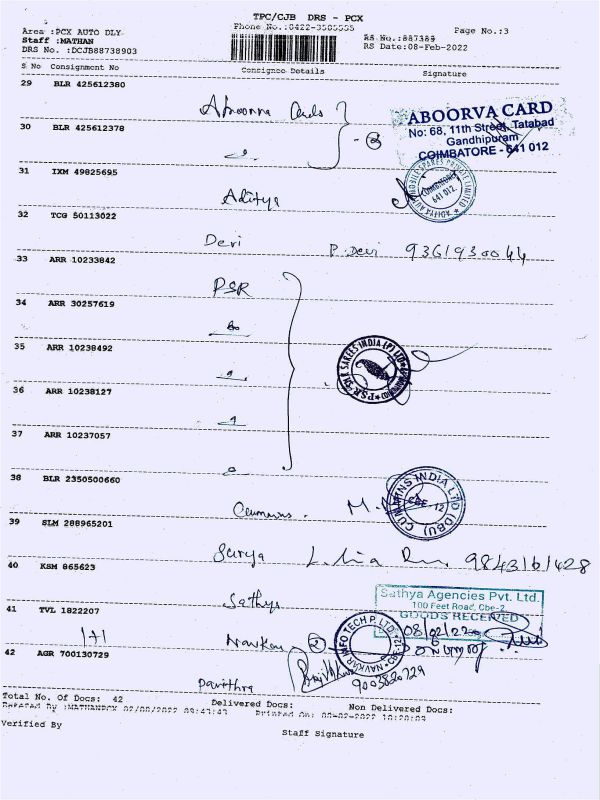 TPC/CJB DRS - PCX
Area :PCX AUTO DLY
Phone No.:0422-3505555
Page No.:3
Staff :MATHAN
RS No.:887389
DRS No. :DCJB88738903
RS Date:08-Feb-2022
S No Consignment No Consignee Details Signature
29 BLR 425612380
Aboorva Cards
ABOORVA CARD
No: 68, 11th Street, Tatabad
Gandhipuram
COIMBATORE - 641 012
30 BLR 425612378
31 IXM 49825695
Aditya
COIMBATORE
641 012.
32 TCG 50113022
Devi P. Devi 9361930044
33 ARR 10233842
PSR
34 ARR 30257619
35 ARR 10238492
P.S.R SILK SAREES INDIA (P) LTD
36 ARR 10238127
37 ARR 10237057
38 BLR 2350500660
Cummins. M.
CUMMINS INDIA LTD (DBU)
CBE - 12
39 SLM 288965201
Surya 9843161428
40 KSM 865623
Sathya
Sathya Agencies Pvt. Ltd.
100 Feet Road, Cbe-2
GOODS RECEIVED
41 TVL 1822207
1+1 Navkar 2
NAVKAR INFO TECH P. LTD.
42 AGR 700130729
Pavithra 9003820729
Total No. Of Docs: 42 Delivered Docs: Non Delivered Docs:
Entered By :MATHANPCX 02/08/2022 09:43:43 Printed On: 08-02-2022 10:20:09
Verified By
Staff Signature